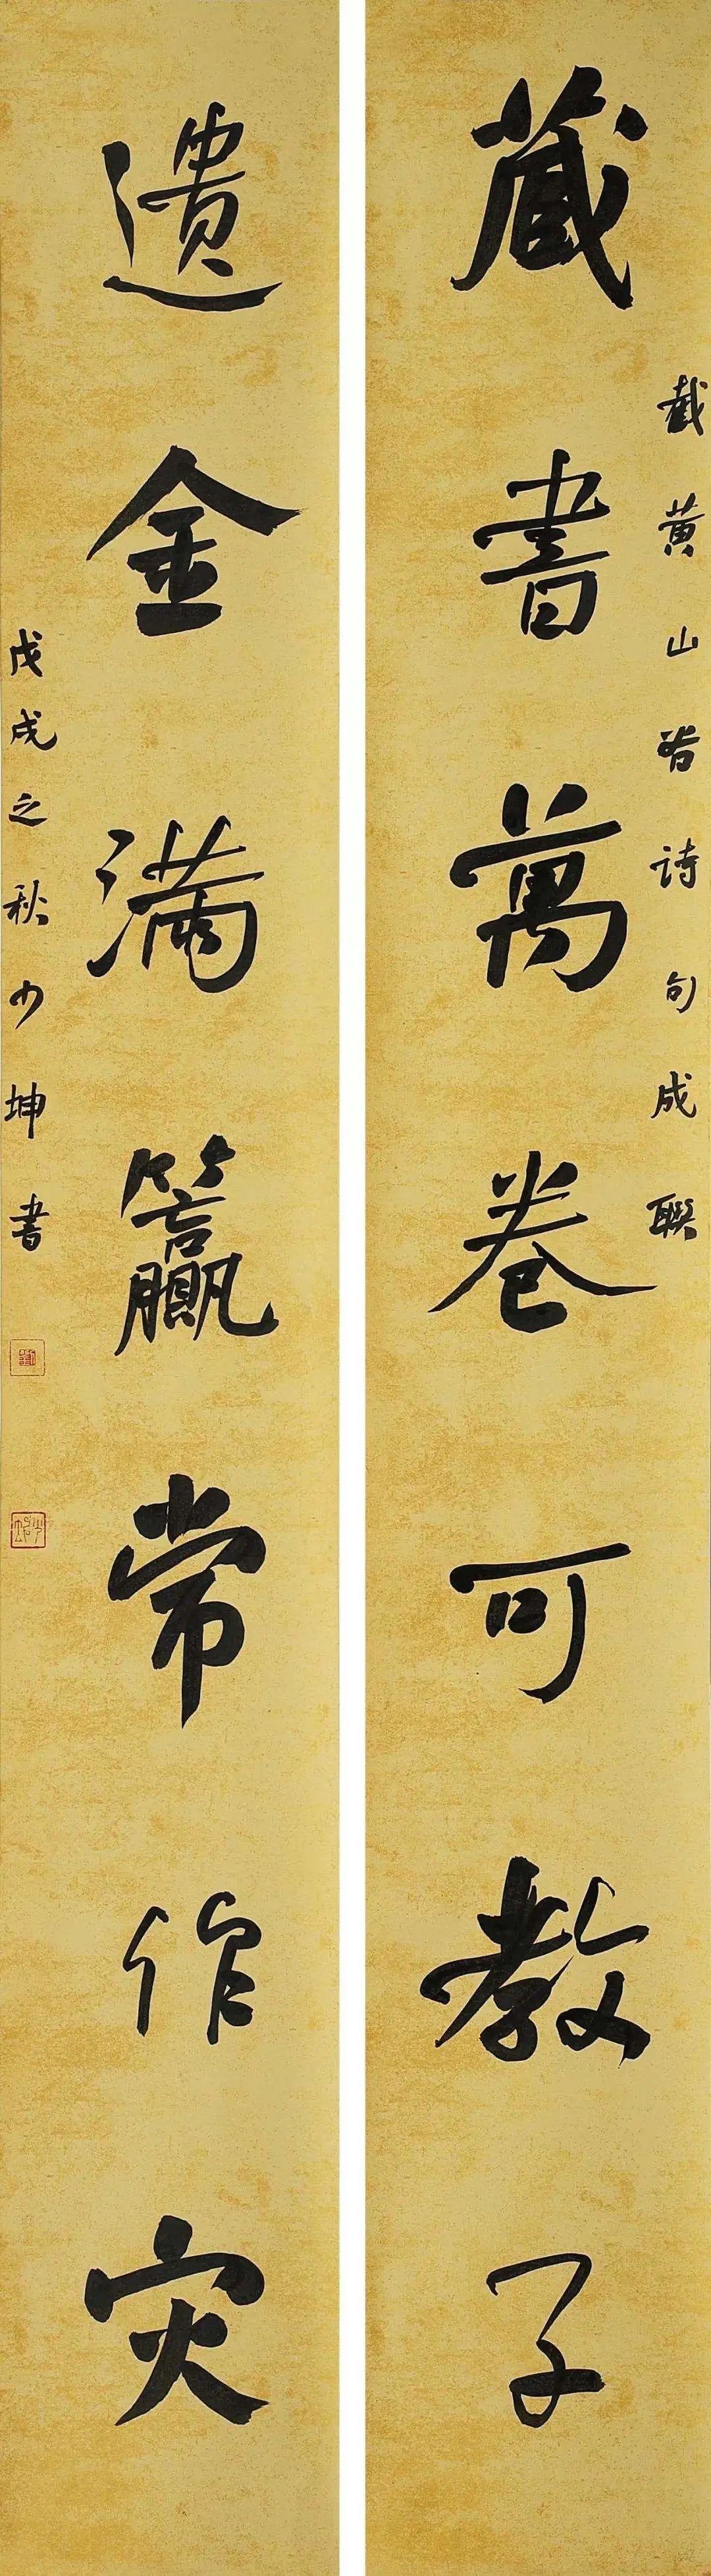 藏書萬卷可教子
截黄山谷诗句成聯
遺金滿籯常作灾
戊戌之秋少坤書